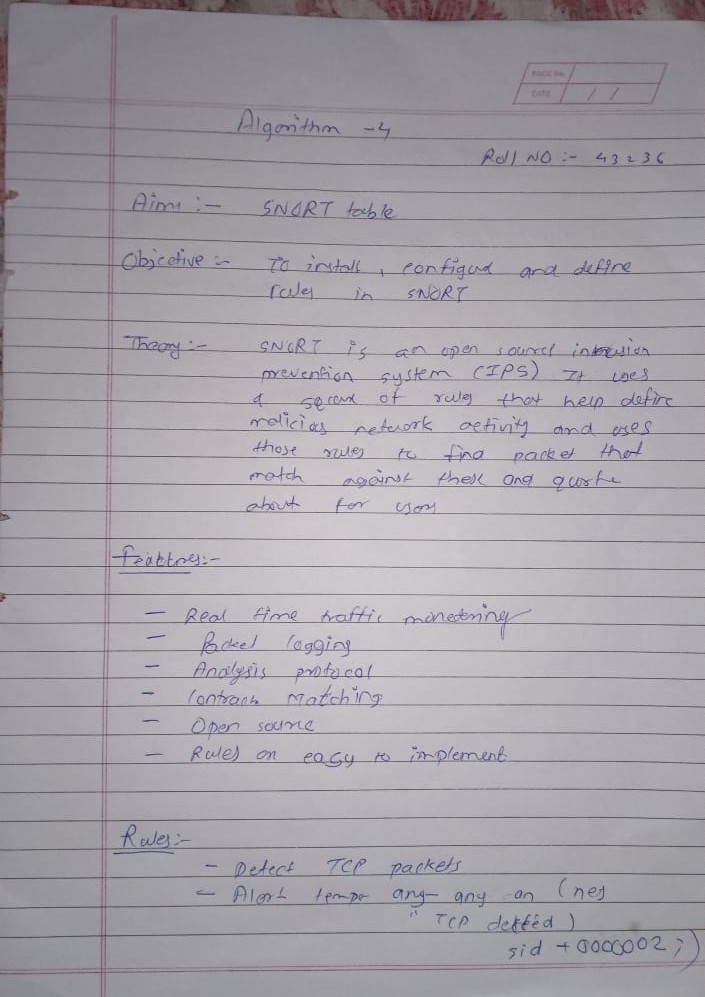 PAGE No.
DATE / /
Algorithm - 4
Roll NO :- 43236
Aim :- SNORT table
Objective :- To install, configud and define
rules in SNORT
Theory :- SNORT is an open source intrusion
prevention system (IPS) It uses
a of rules that help define
network activity and uses
those rules to find packet that
match against these and
about for
Features:-
- Real time traffic
- Packet logging
- Analysis protocol
- matching
- Open source
- Rules on easy to implement
Rules:-
- Detect TCP packets
- Alert any any an (
" TCP )
sid +0000002 ; )